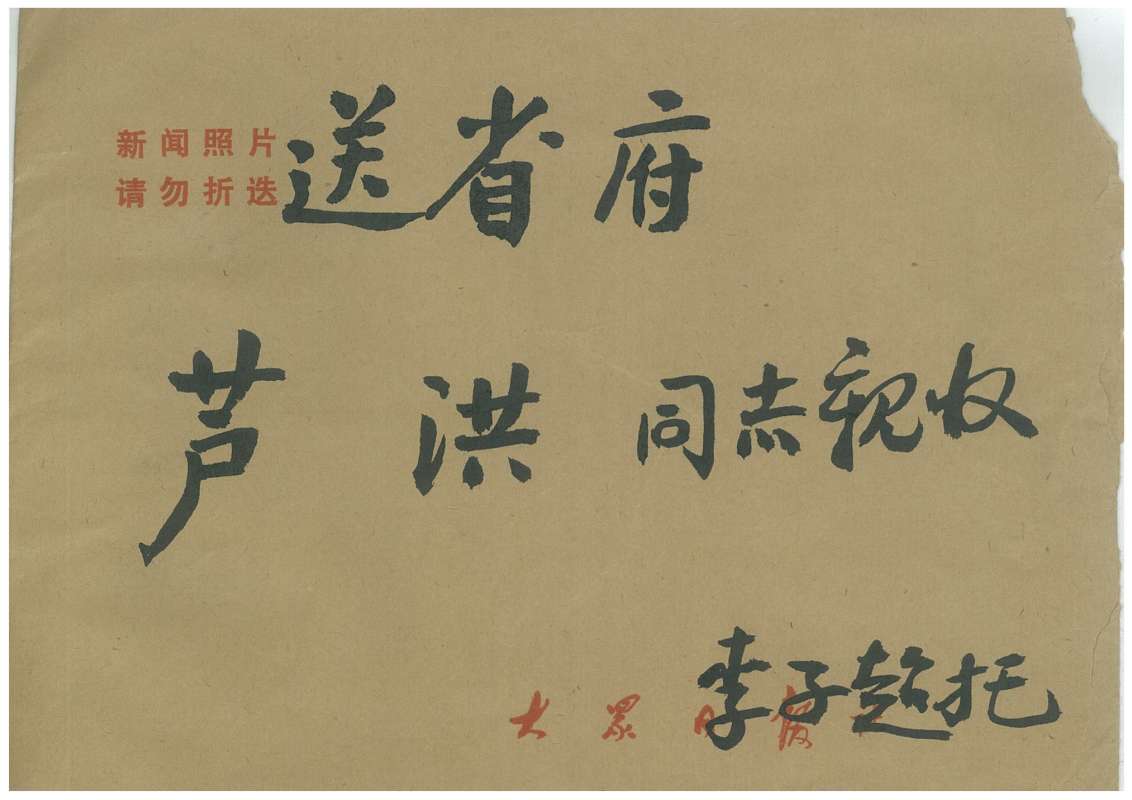 新闻照片
请勿折迭
送省府
芦洪同志亲收
李子超托
大众日报